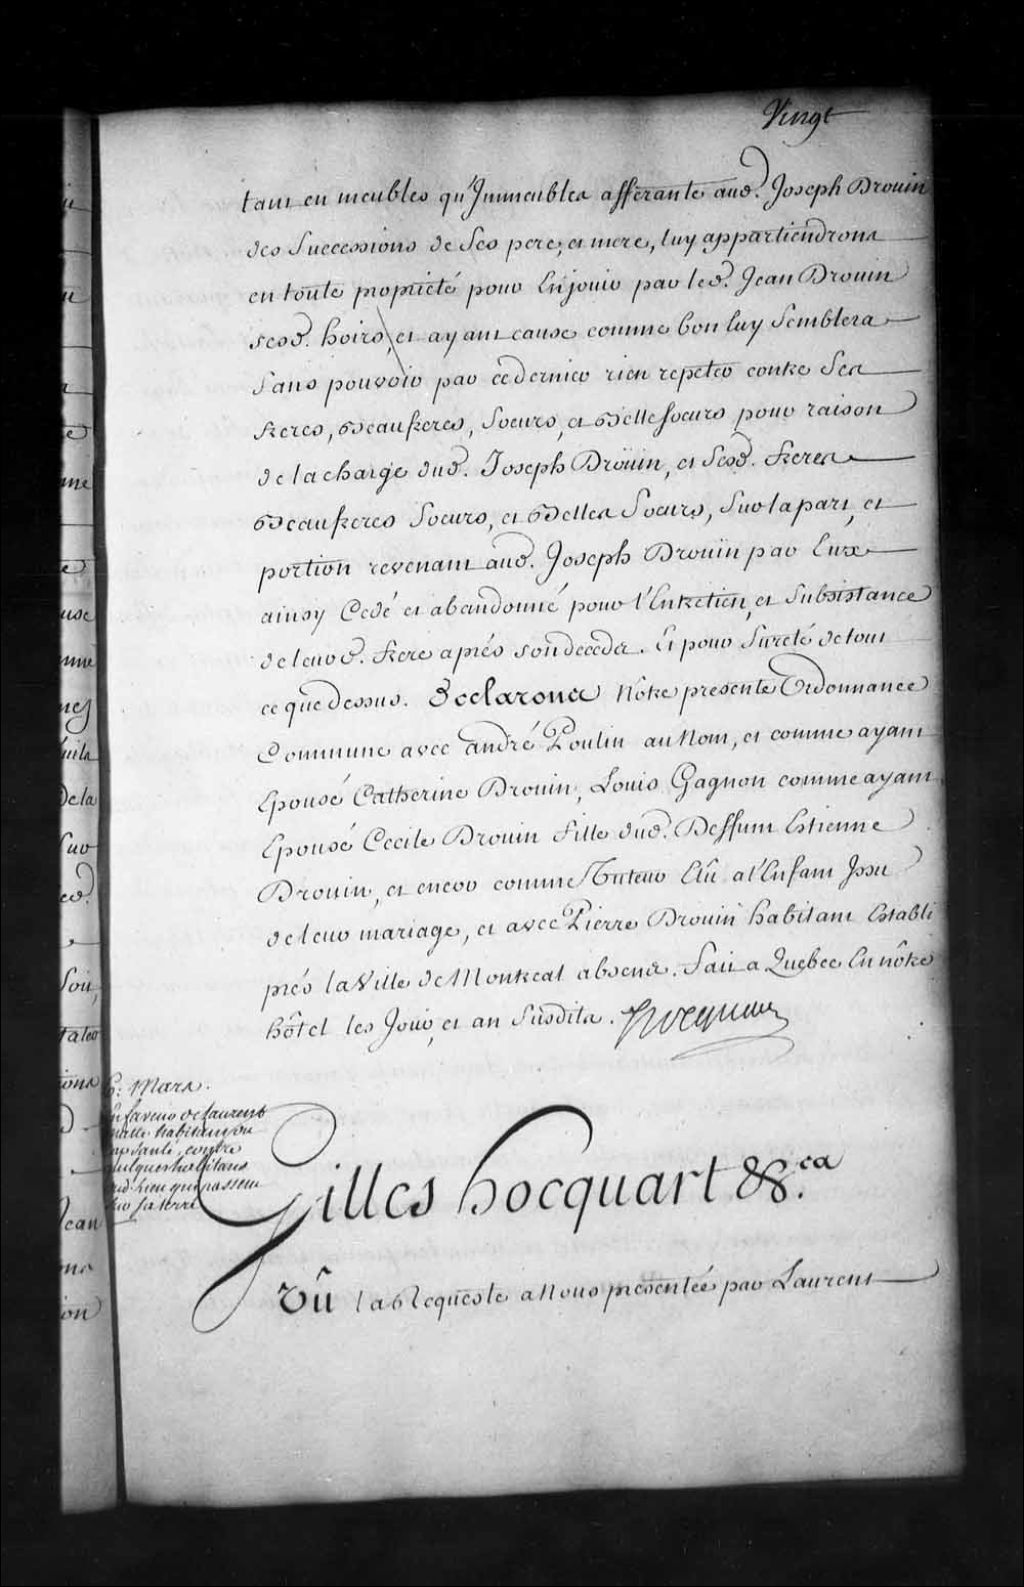 Vingt
tant en meubles qu'Immeubles afferante aud. Joseph Drouin
des Successions de Ses pere, et mere, luy appartiendrons
en toute proprieté pour En jouir par led. Jean Drouin
sesd. hoirs, et ayant cause comme bon luy Semblera
Sans pouvoir par ce dernier rien repeter contre Ses
freres, Beaufreres, Soeurs, et Bellesoeurs pour raison
de la charge dud. Joseph Droüin, et Sesd. freres
Beaufreres Soeurs, et Belles Soeurs, Sur la part, et
portion revenant aud. Joseph Drouin par Eux
ainsy Cedé et abandonné pour l'Entretien, et Subsistance
de leurd. frere aprés son decedes. Et pour Sureté de tout
ce que dessus. Declarons Nôtre presente Ordonnance
Commune avec andré Poulin au Nom, et comme ayant
Epousé Catherine Drouin, Louis Gagnon comme ayant
Epousé Cecile Drouin fille dud. Deffunt Estienne
Drouin, et encor comme Tuteur Elû a l'Enfant Issu
de leur mariage, et avec Pierre Drouin habitant Establi
prés la Ville de Montreal absens. Fait a Quebec En nôtre
hôtel les Jour, et an Susdits. Hocquart
6. Mars.
En faveur de Laurent
habitant du
Cap Santé, contre
quelques habitans
dud. Lieu qui passent
sur sa terre
Gilles hocquart &c.ca
Vû la Requeste a Nous presentée par Laurent